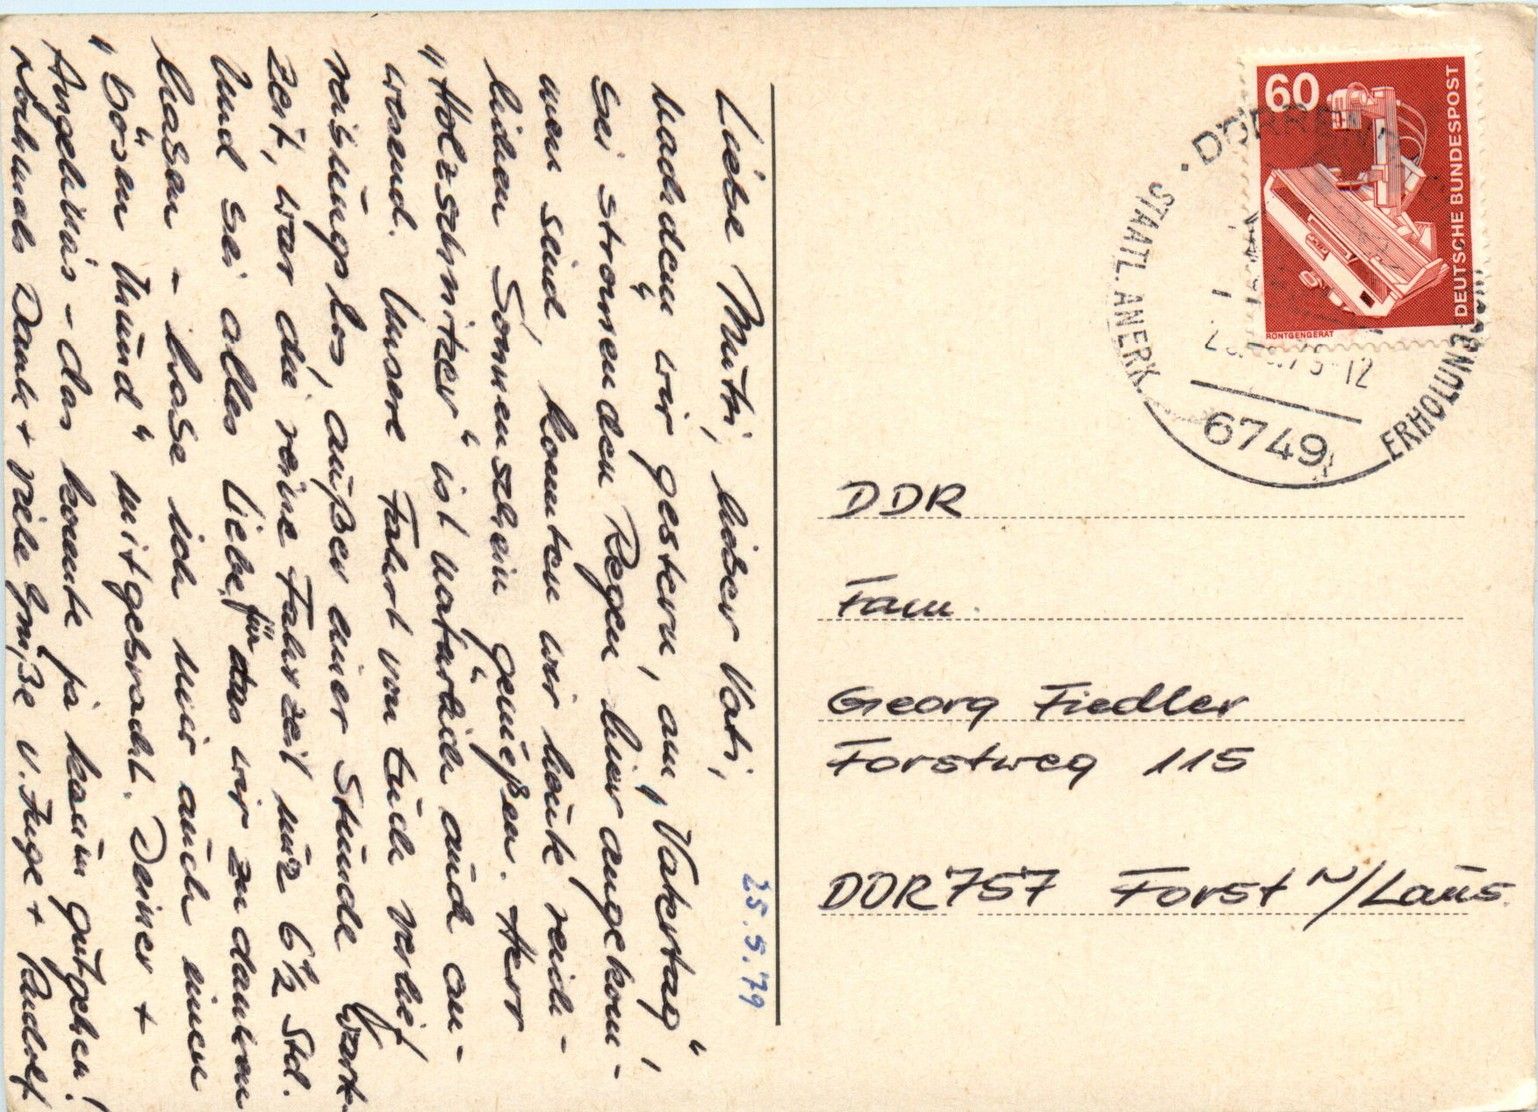 25.5.79
Liebe Mutti, lieber Vati,
nachdem wir gestern, am „Vatertag“,
bei strömenden Regen hier angekom-
men sind, konnten wir heute reich-
lichen Sonnenschein genießen. Herr
„Holzschnitzer“ ist natürlich auch an-
wesend. Unsere Fahrt von Euch verlief
reibungslos, außer einer Stunde Wart-
zeit, war die reine Fahrzeit nur 6½ Std.
Und bei alles Liebe, für das wir zu danken
haben – habe ich mir auch einen
„bösen Mund“ mitgebracht. Deiner +
Angelikas – das konnte ja kaum gutgehen!
Nochmals Dank + viele Grüße v. Inge + Rudolf
60
DEUTSCHE BUNDESPOST
RÖNTGENGERÄT
STAATL. ANERK.
ERHOLUNGS
12
6749
DDR
Fam.
Georg Fiedler
Forstweg 115
DDR 757 Forst N/Laus.